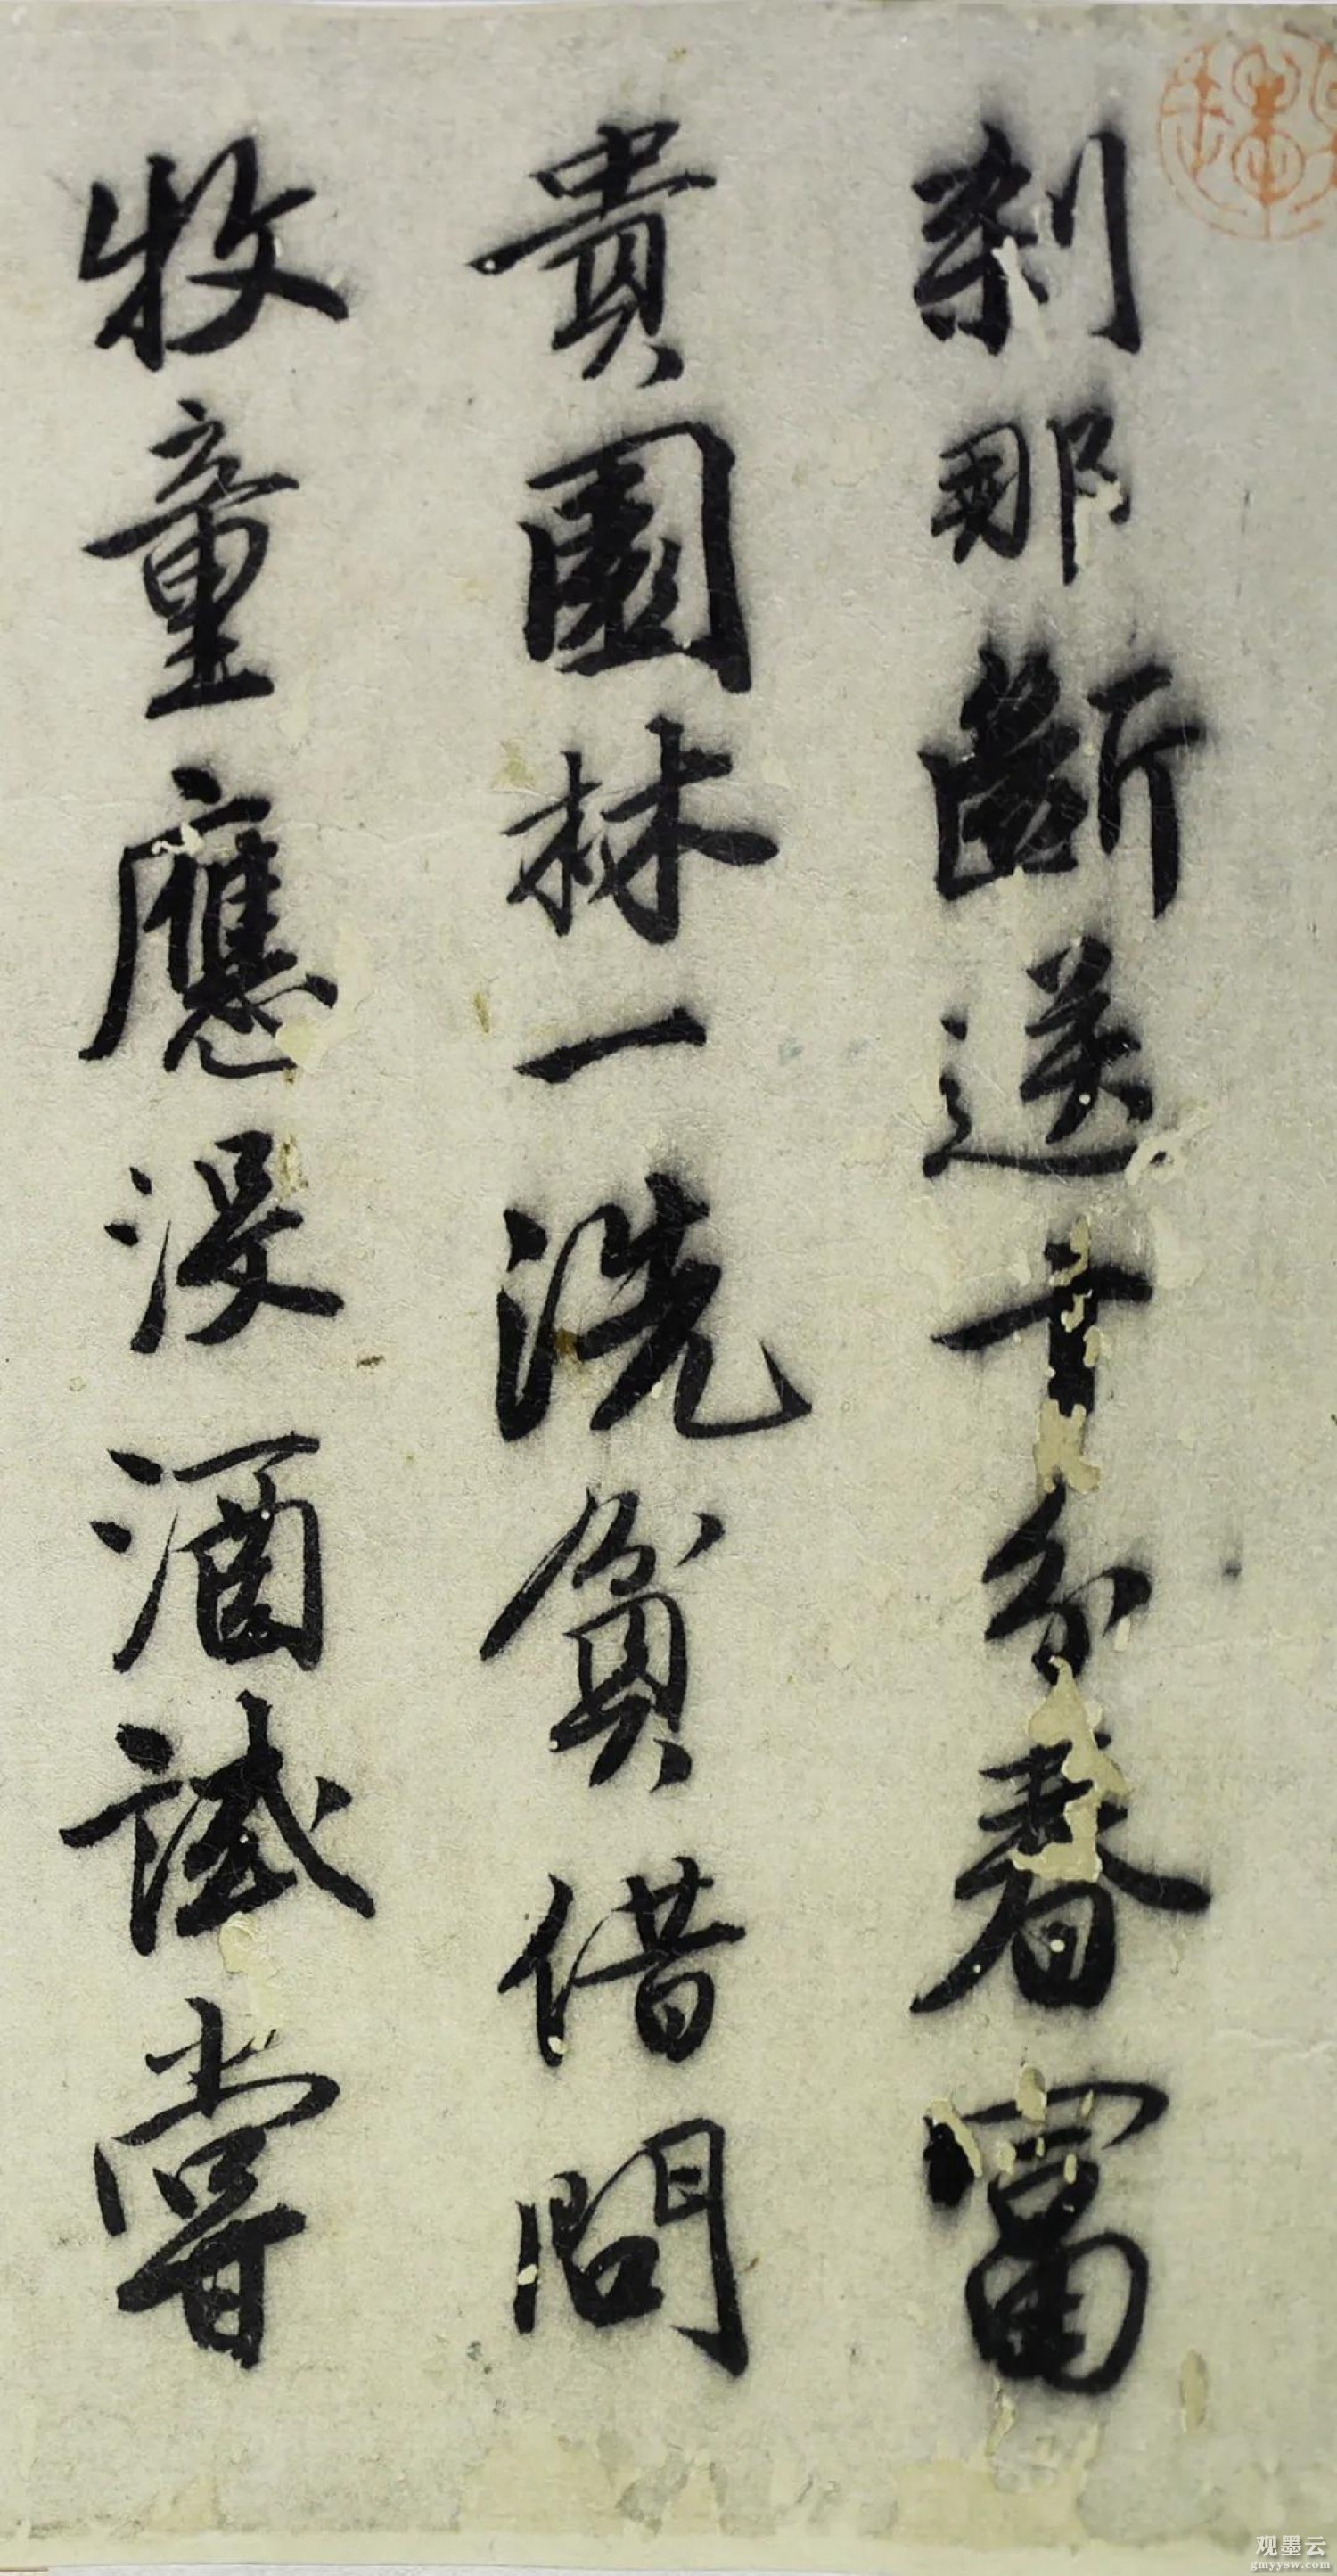 刹那斷送十分春富
貴園林一洗貧借問
牧童應沒酒試嘗
观墨云
gmyysw.com